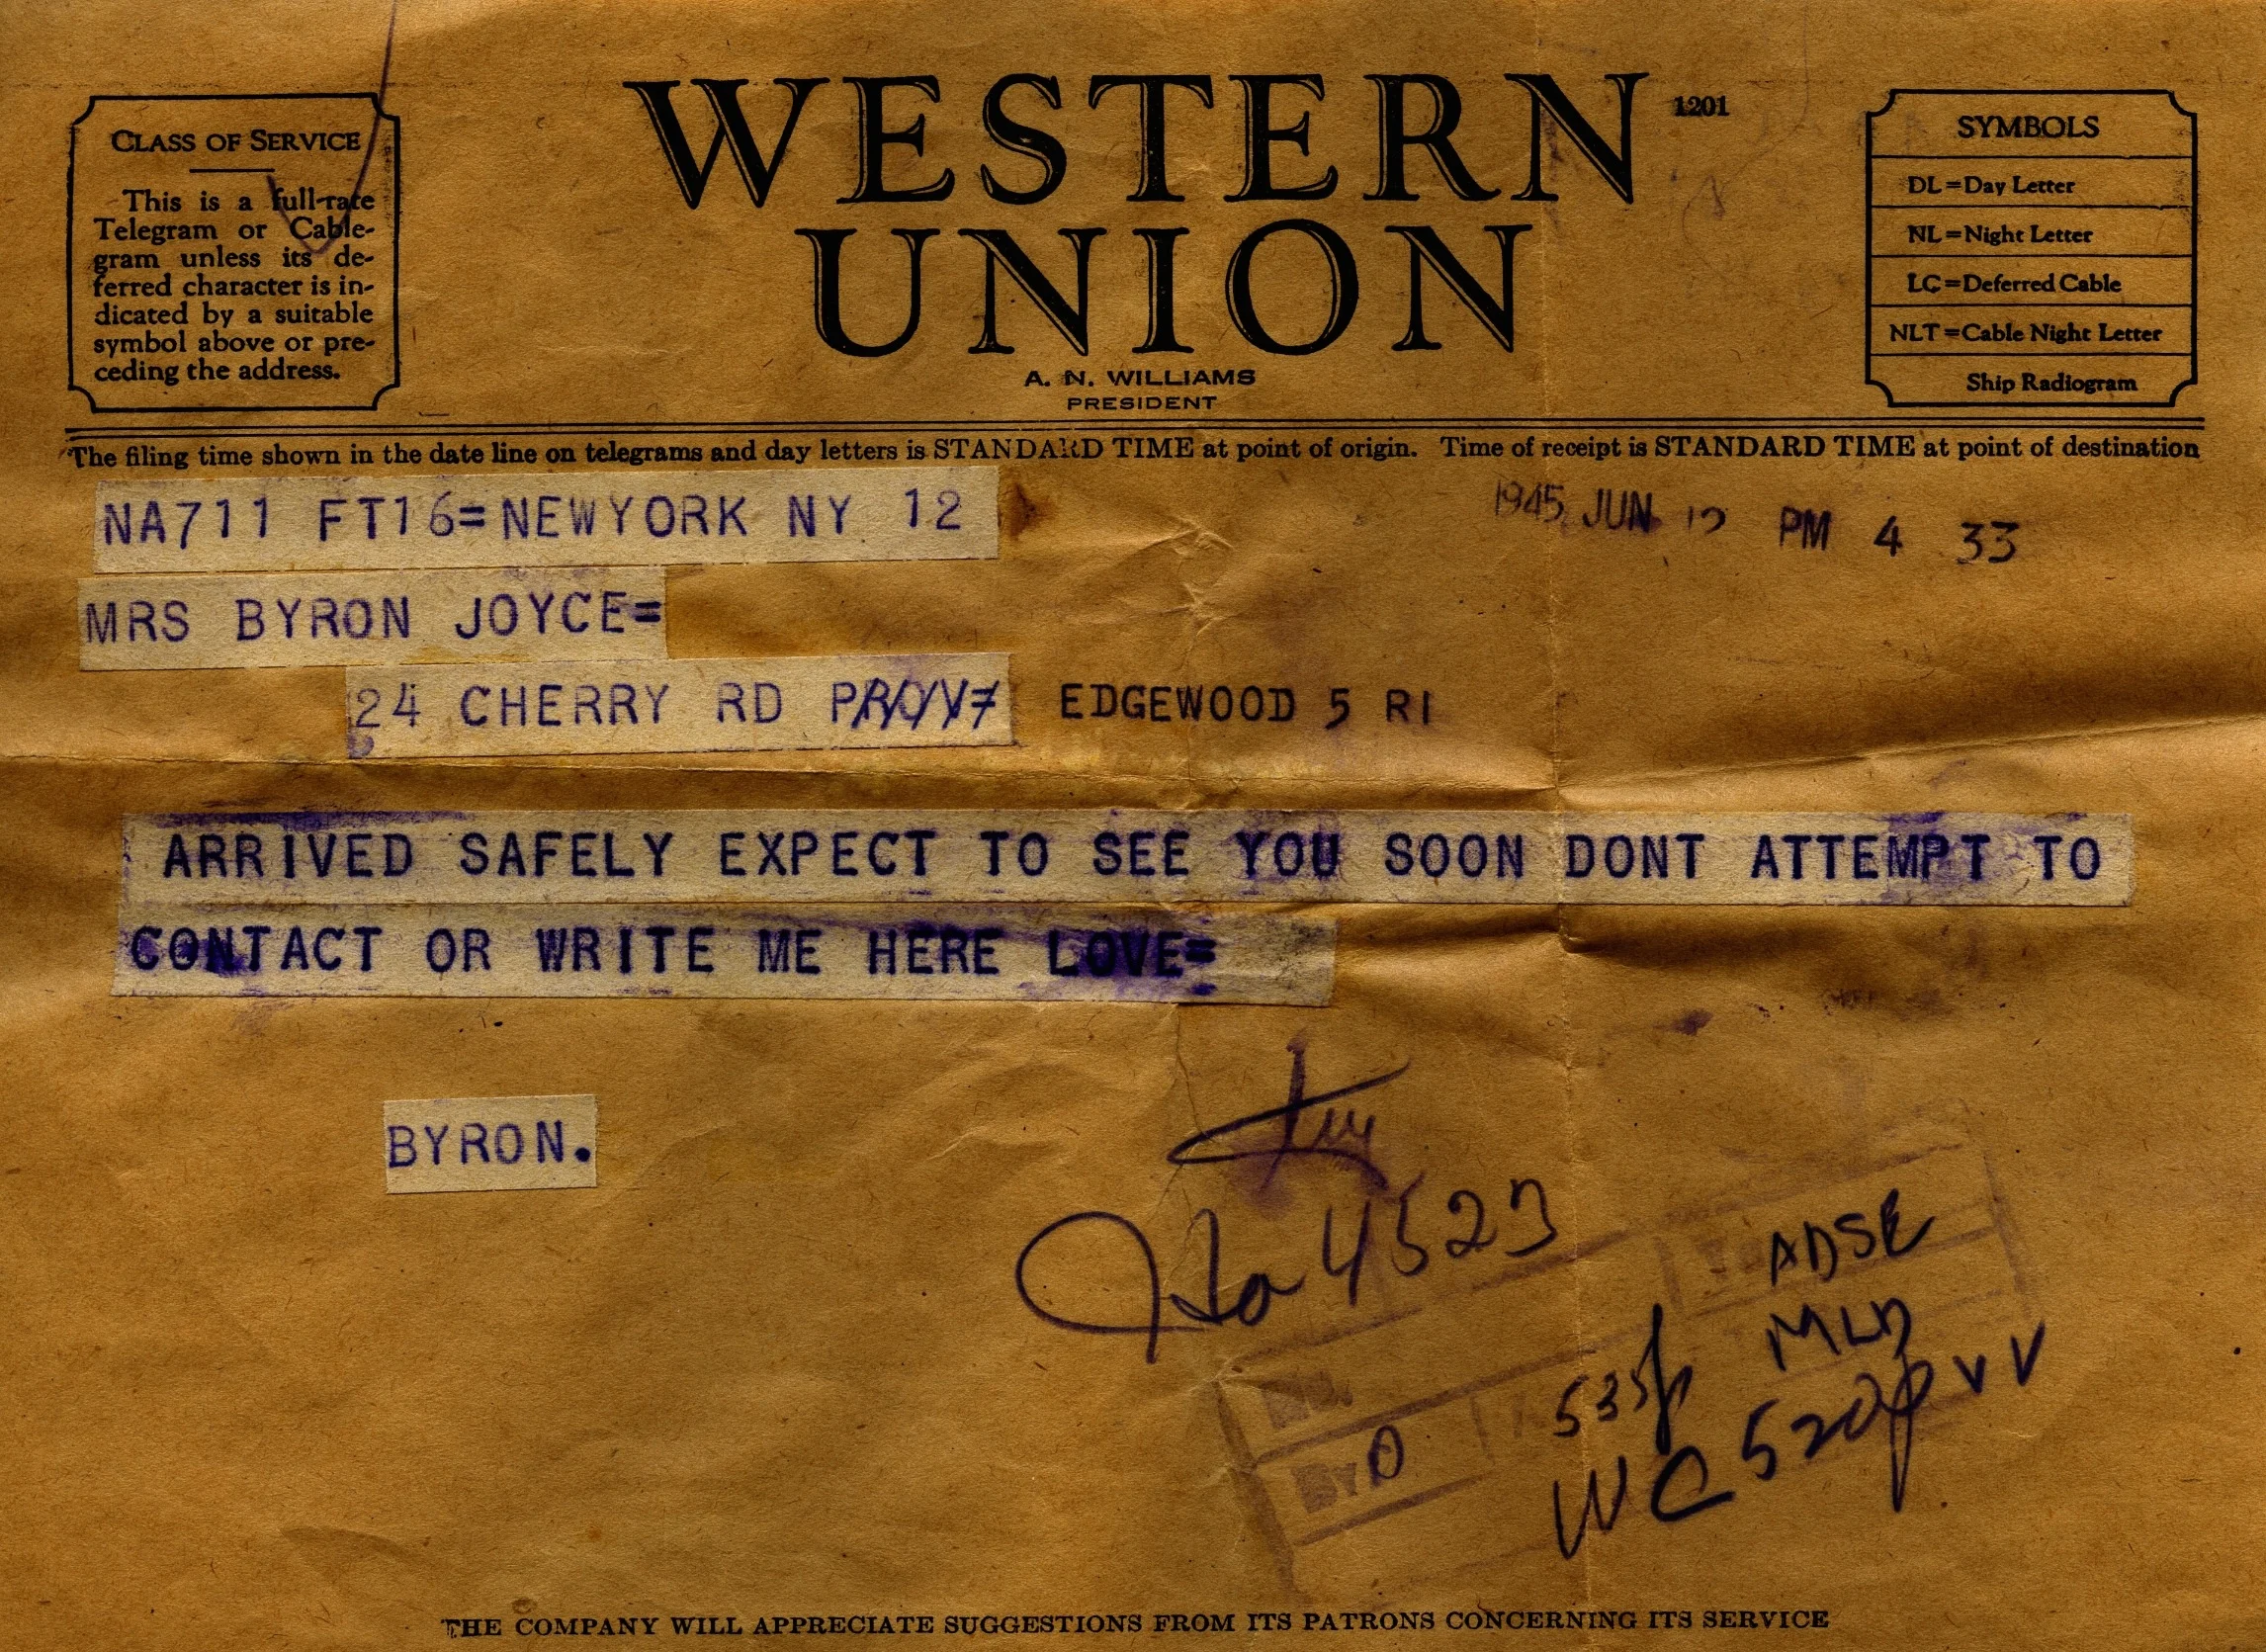 WESTERN
UNION
1201
A. N. WILLIAMS
PRESIDENT
CLASS OF SERVICE
This is a full-rate
Telegram or Cable-
gram unless its de-
ferred character is in-
dicated by a suitable
symbol above or pre-
ceding the address.
SYMBOLS
DL=Day Letter
NL=Night Letter
LC=Deferred Cable
NLT=Cable Night Letter
Ship Radiogram
The filing time shown in the date line on telegrams and day letters is STANDARD TIME at point of origin. Time of receipt is STANDARD TIME at point of destination
NA711 FT16=NEWYORK NY 12
1945 JUN PM 4 33
MRS BYRON JOYCE=
24 CHERRY RD PROV= EDGEWOOD 5 RI
ARRIVED SAFELY EXPECT TO SEE YOU SOON DONT ATTEMPT TO
CONTACT OR WRITE ME HERE LOVE=
BYRON.
Ho 4523
ADSE
MLD
535p
WC 520p V V
BY
THE COMPANY WILL APPRECIATE SUGGESTIONS FROM ITS PATRONS CONCERNING ITS SERVICE